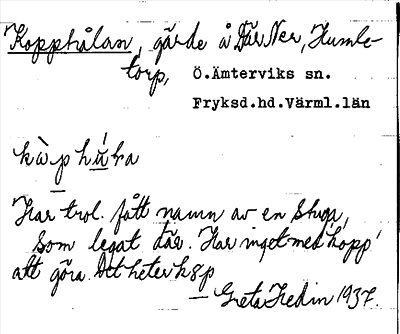 Kopphålan, gärde å Där Ner, Humle-
torp,
Ö.Ämterviks sn.
Fryksd.hd.Värml.län
kàp hùla
Har trol. fått namn av en stuga,
som legat där. Har inget med 'kopp'
att göra. Det heter kɔp
— Greta Hedin 1937.